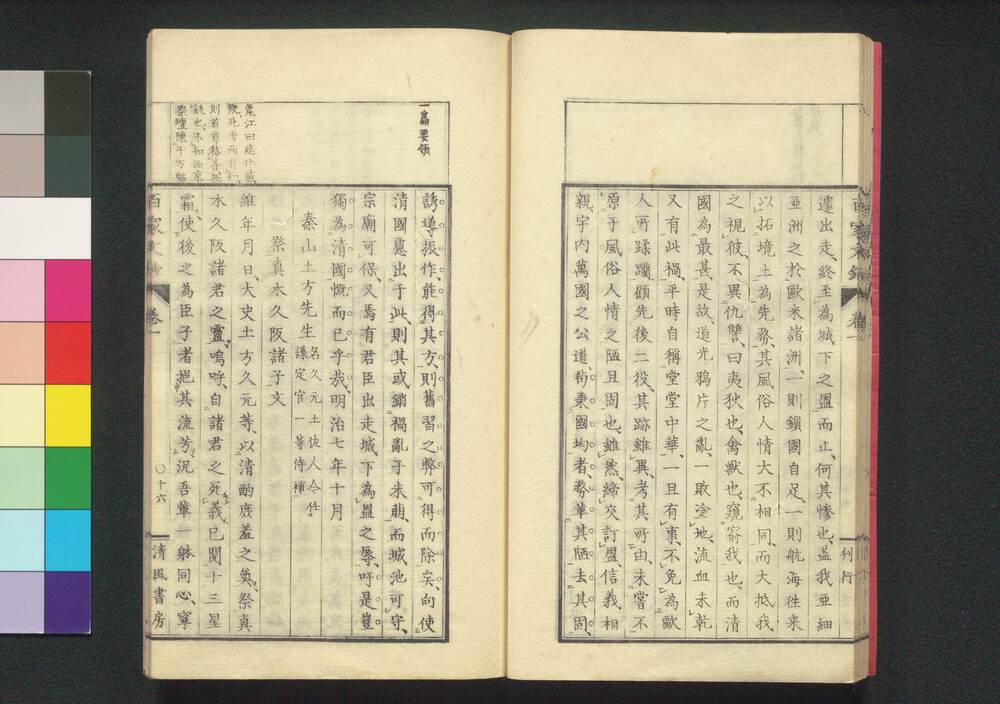 遽出走、終至為城下之盟而止、何其慘也、蓋我亜細
亜洲之於歐米諸洲、一則鎖國自足、一則航海往来
以拓境土為先務、其風俗人情大不相同、而大抵我
之視彼、不異仇讐、曰夷狄也、禽獣也、窺窬我也、而清
國為最甚、是故道光鴉片之亂、一敗塗地、流血未乾
又有此禍、平時自稱堂堂中華、一旦有事、不免為歐
人所蹂躙、顧先後二役、其跡雖異、考其所由、未嘗不
原于風俗人情之陋且固也、雖然、締交訂盟、信義相
親、宇内萬國之公道、苟秉國均者、務革其陋、去其固、
刊行
一篇要領
誘導振作能得其方、則舊習之弊可得而除矣、向使
清國慮出于此、則其或銷禍亂于未萠、而城池可守、
宗廟可保、又焉有君臣出走城下為盟之辱、吁是豈
獨為清國慨而已乎哉、明治七年十月
秦山土方先生 名久元土佐人今任
議定官一等侍補
祭真木久阪諸子文
維年月日、大史土方久元等、以清酌庶羞之奠、祭真
木久阪諸君之靈、嗚呼、自諸君之死義、已閲十三星
霜、使後之為臣子者挹其流芳、況吾輩一躰同心、寧
百家文鈔
卷一
○十六
清風書房